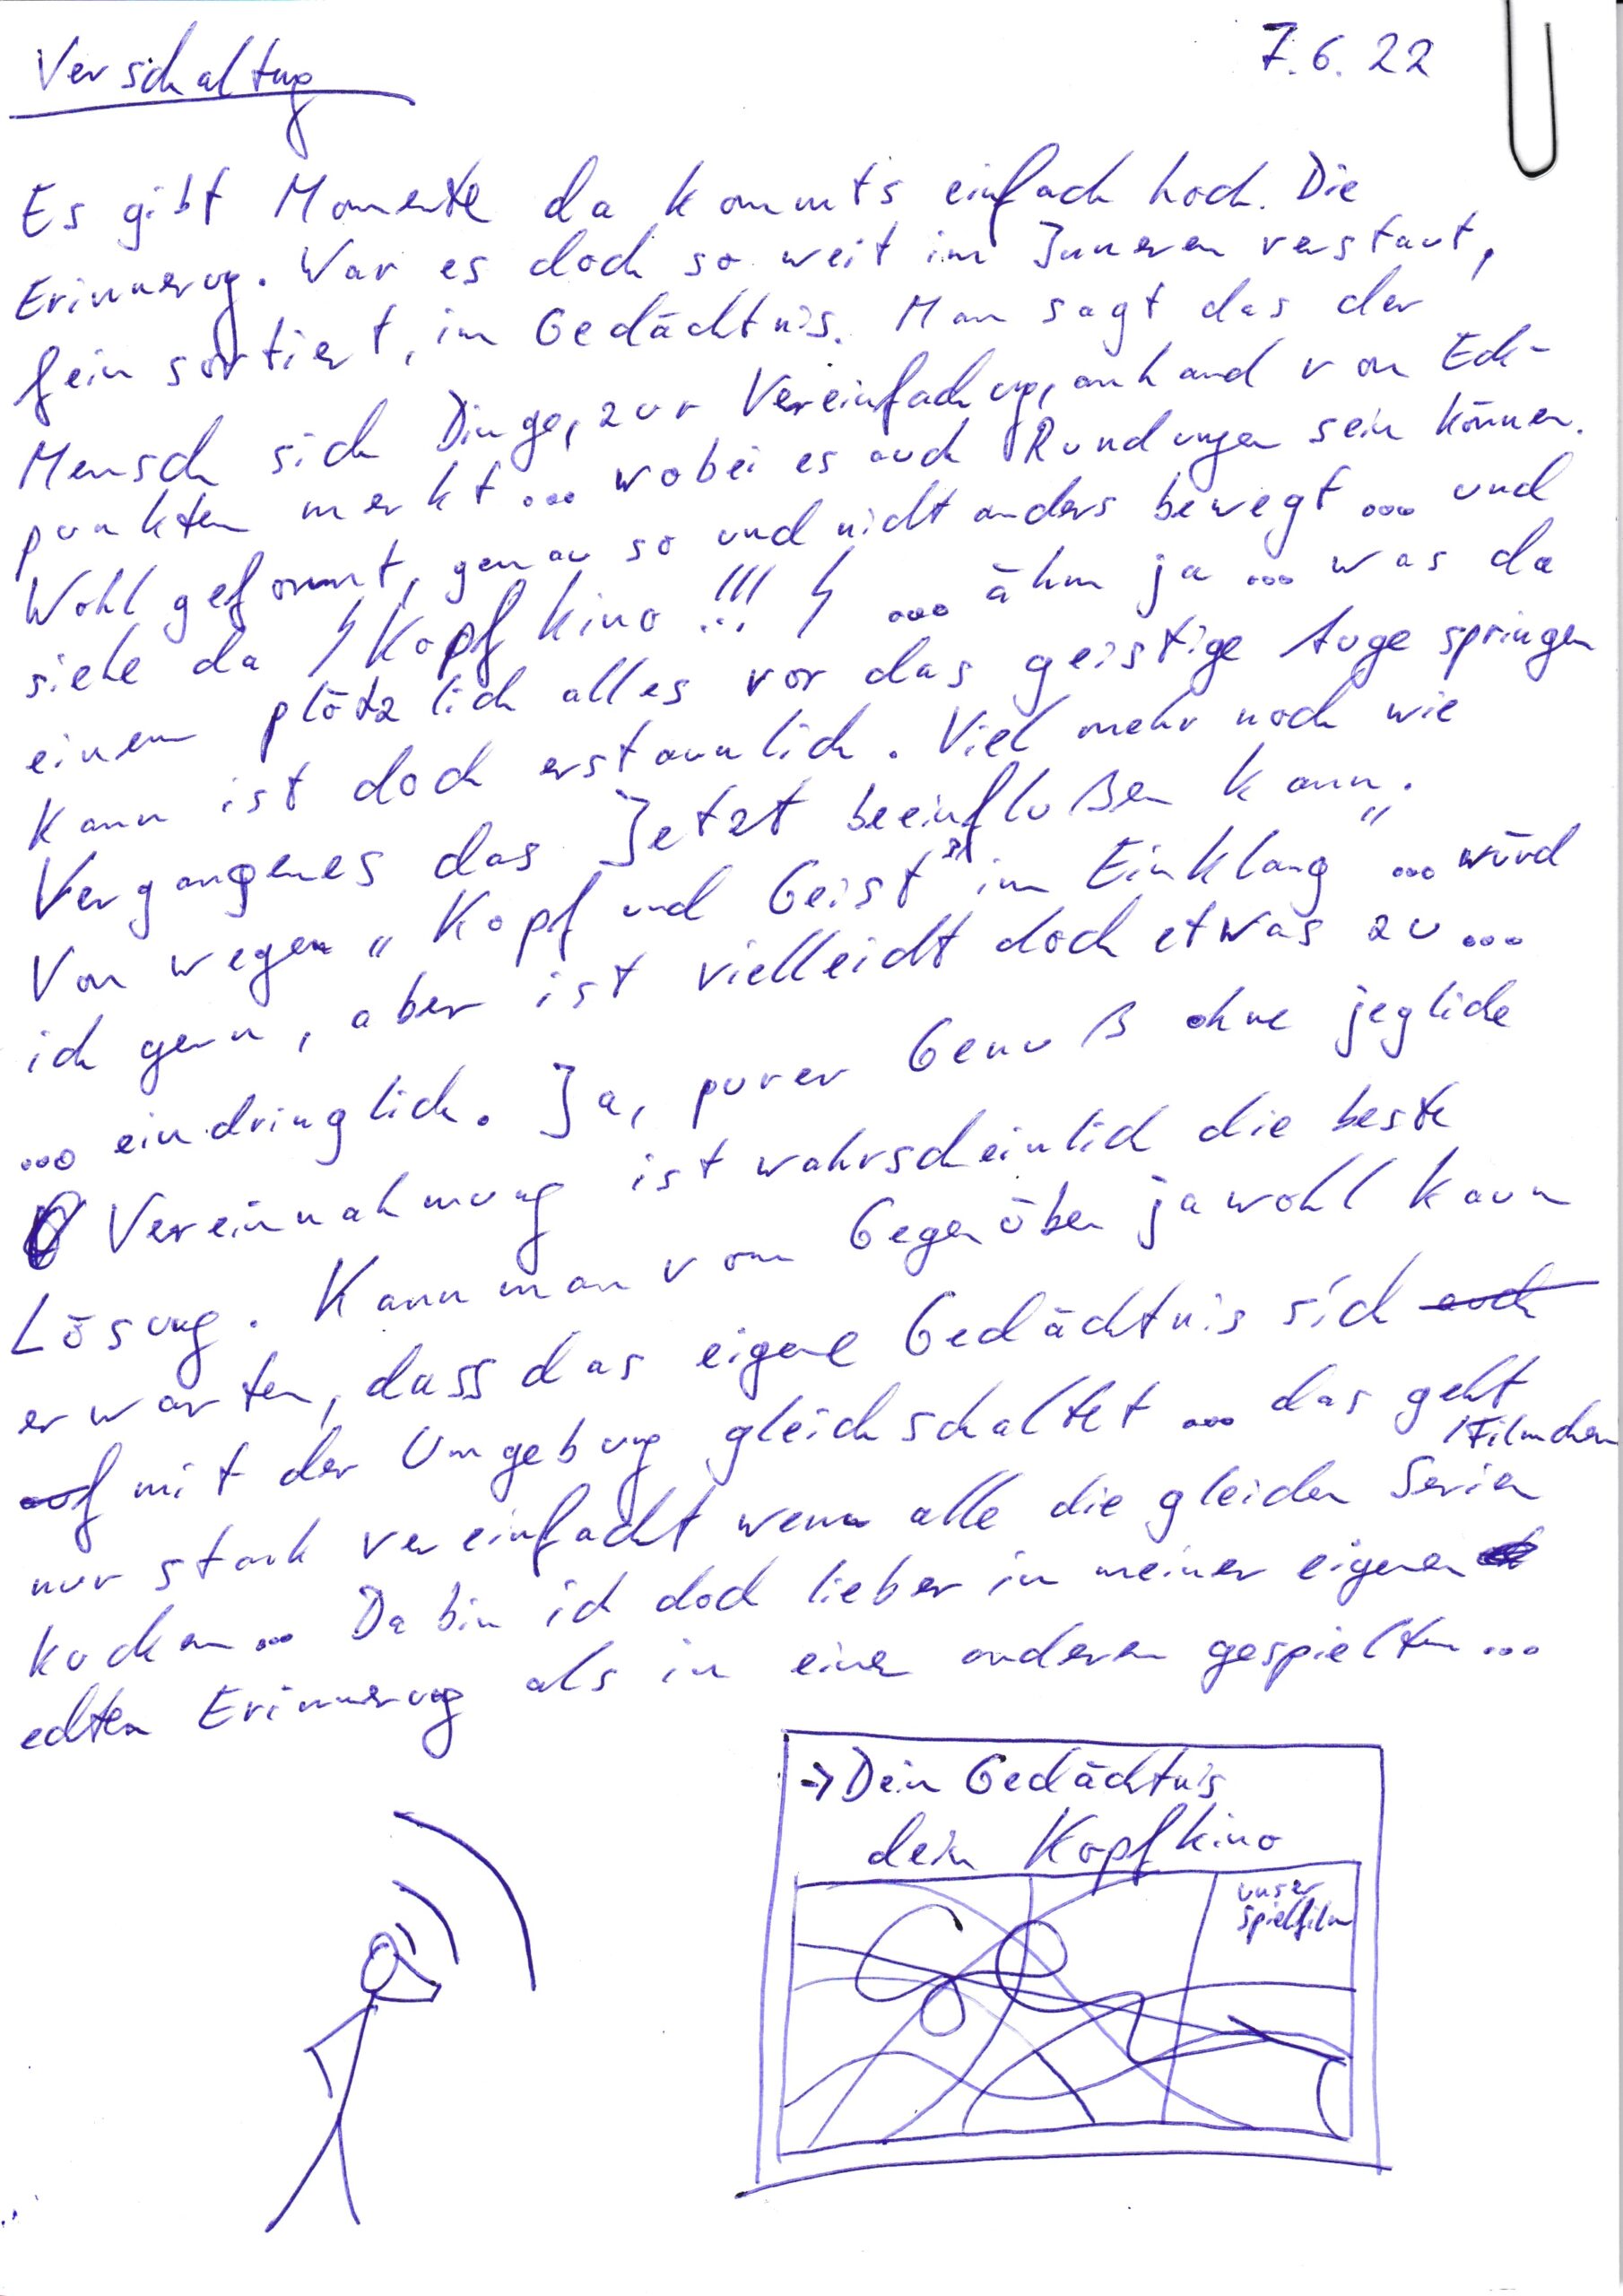 Verschaltung
7.6.22
Es gibt Momente da kommts einfach hoch. Die
Erinnerung. War es doch so weit im Inneren verstaut,
fein sortiert, im Gedächtnis. Man sagt das der
Mensch sich Dinge, zur Vereinfachung, anhand von Eck-
punkten merkt ... wobei es auch Rundungen sein können.
Wohl geformt, genau so und nicht anders bewegt ... und
siehe da Kopfkino !!! ... ähm ja ... was da
einem plötzlich alles vor das geistige Auge springen
kann ist doch erstaunlich. Viel mehr noch wie
Vergangenes das Jetzt beeinflußen kann.
Von wegen „Kopf und Geist sind im Einklang" ... würd
ich gern, aber ist vielleicht doch etwas zu ...
... eindringlich. Ja, purer Genuß ohne jegliche
Vereinnahmung ist wahrscheinlich die beste
Lösung. Kann man vom Gegenüber jawohl kaum
erwarten, dass das eigene Gedächtnis sich auch
auf mit der Umgebung gleichschaltet ... das geht
nur stark vereinfacht wenn alle die gleichen Serien
/Filmchen
kucken ... Da bin ich doch lieber in meiner eigenen
echten Erinnerung als in einer anderen gespielten ...
-> Dein Gedächtnis
dein Kopfkino
unser
Spielfilm